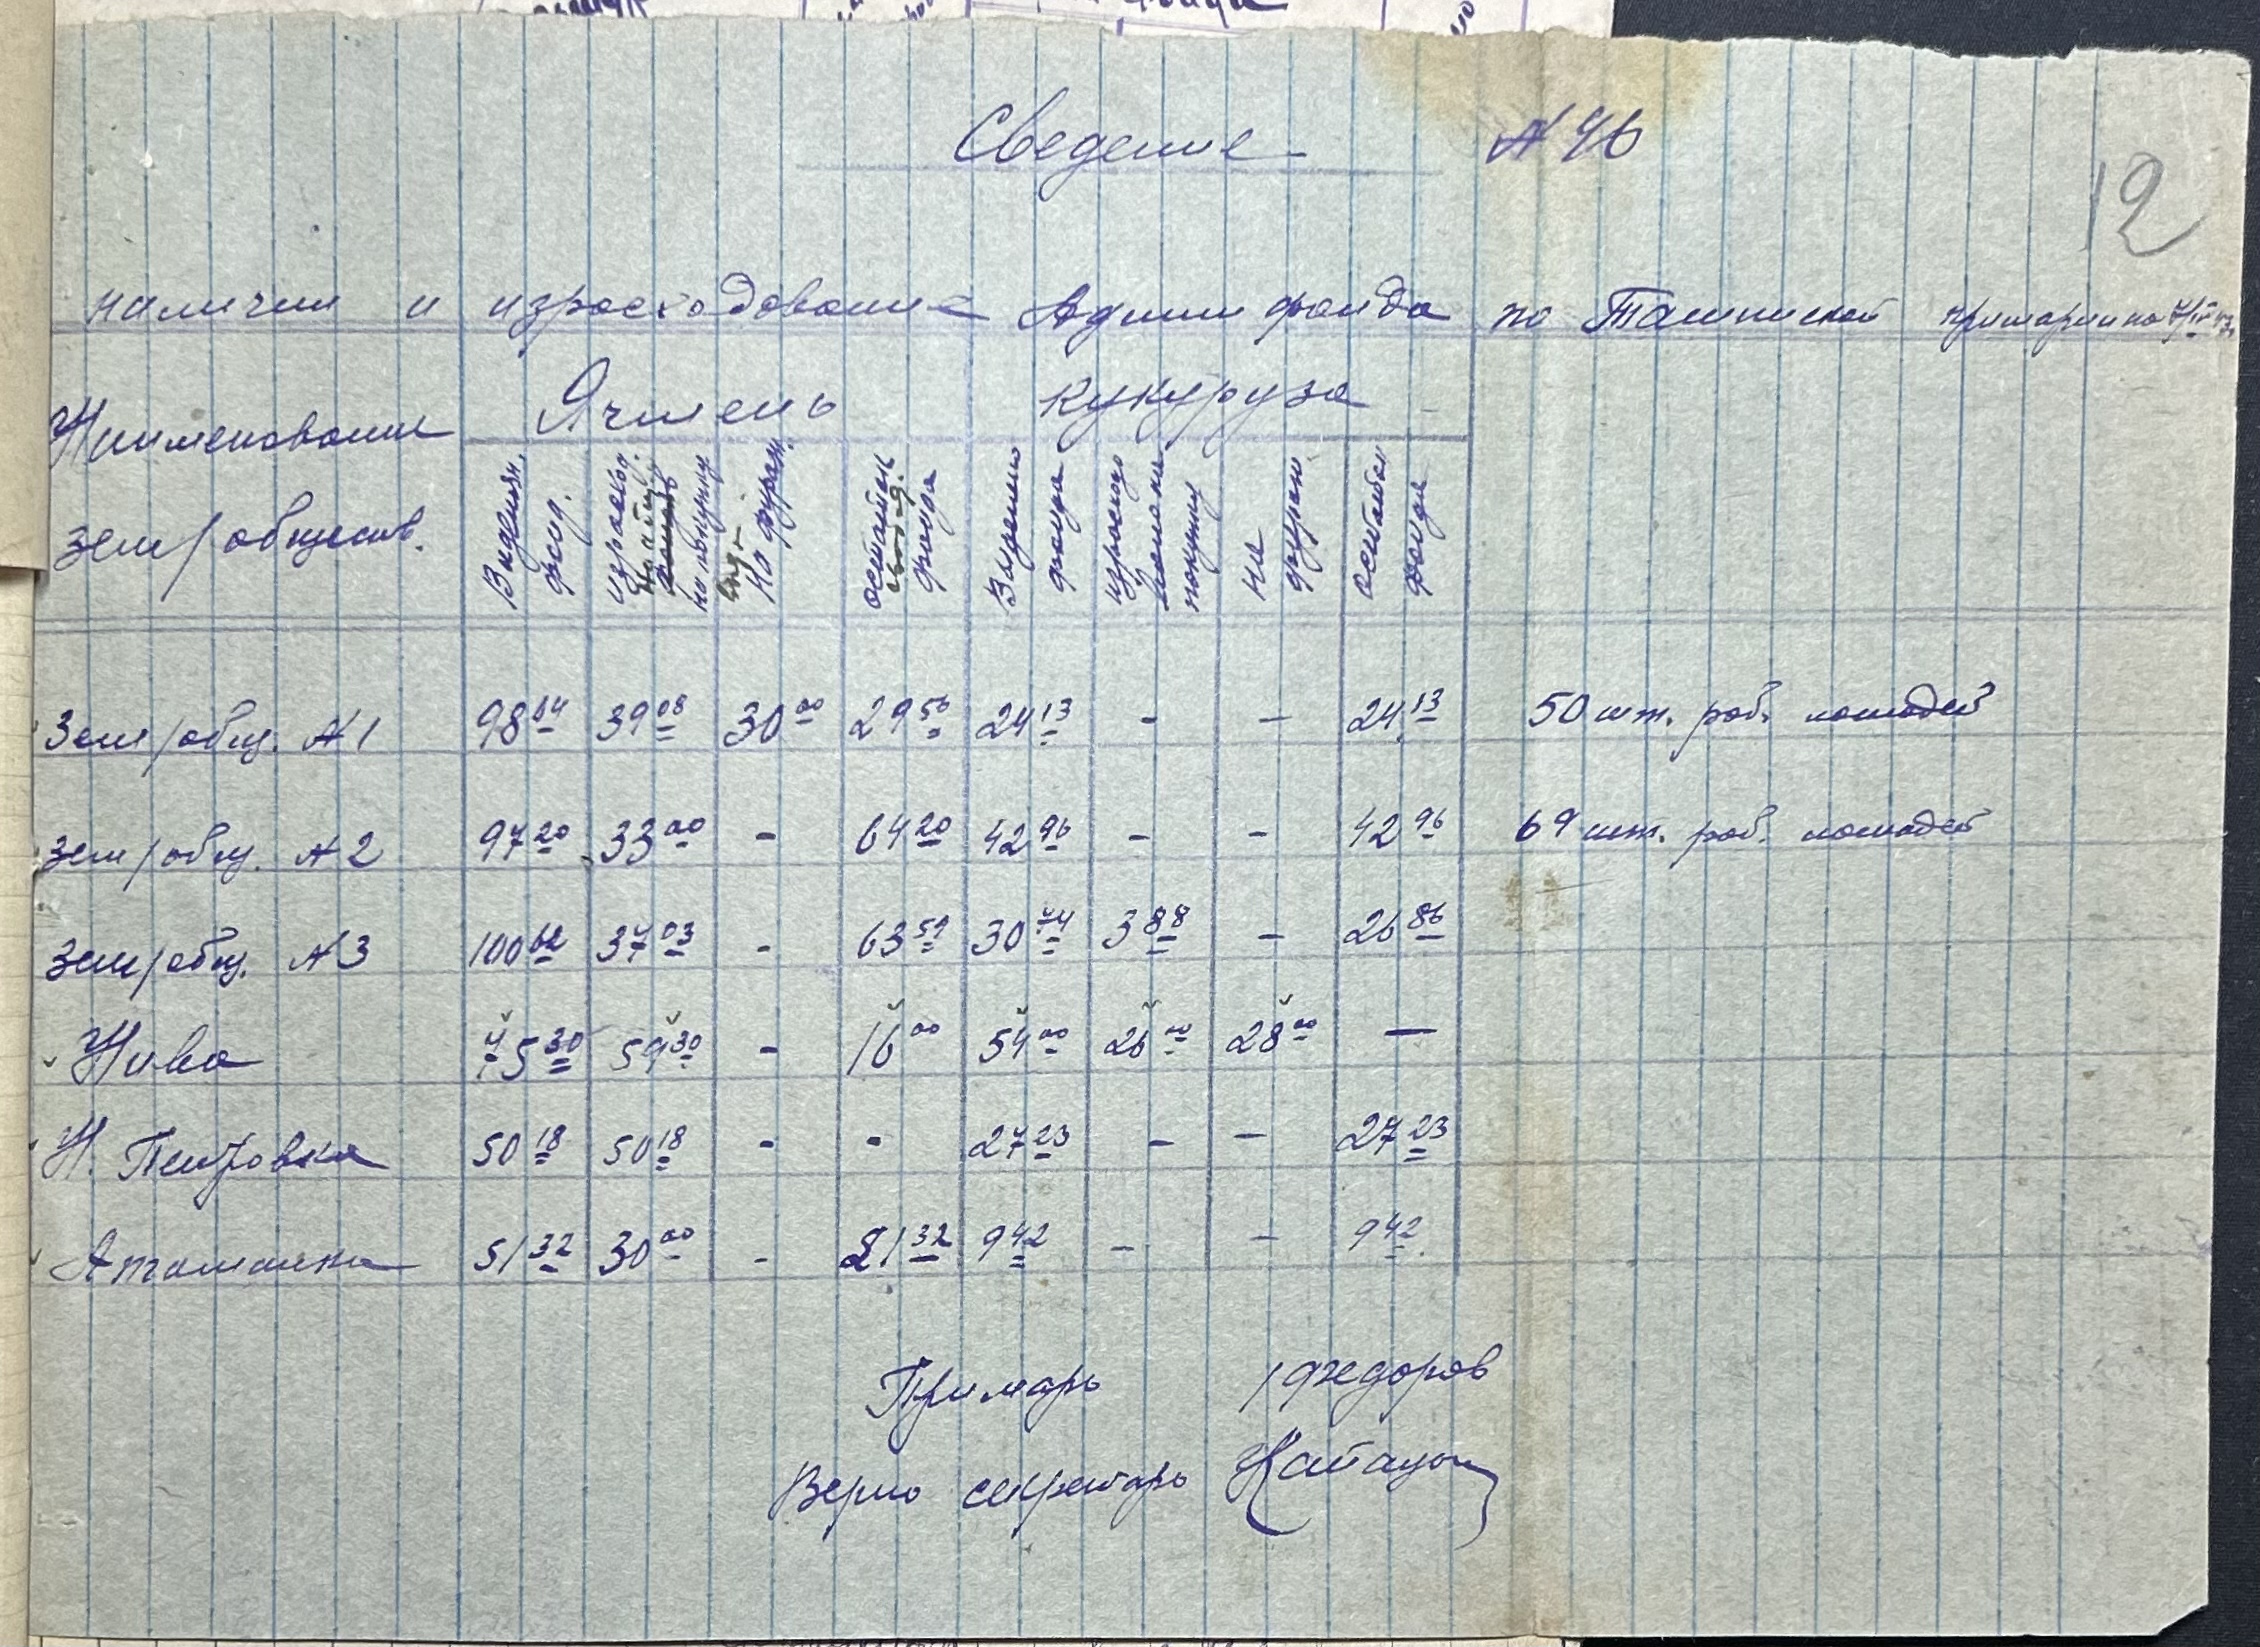 Сведение № 46
12
наличии и израсходование Админ фонда по Ташинской примарии на
Наименование земробществ.
Ячмень
кукуруза
Выделен. фонд.
израсход. на покупку
на фураж.
остаток фонда
Выделено фонда
израсход на покупку
на фураж
остаток фонда
Земробщ. № 1 98 64 39 08 30 00 29 56 24 13 - - 24,13 50 шт. раб. лошадей
Земробщ. № 2 97 20 33 00 - 64 20 42 96 - - 42 96 69 шт. раб. лошадей
Земробщ. № 3 100 62 37 03 - 63 59 30 74 3 88 - 26 86
Нива 75 30 59 30 - 16 00 54 00 26 00 28 00 —
Н. Петровка 50 18 50 18 - - 27 23 - - 27 23
Атаманка 51 32 30 00 - 21 32 9 42 - - 9 42
Примарь / Федоров
Верно секретарь